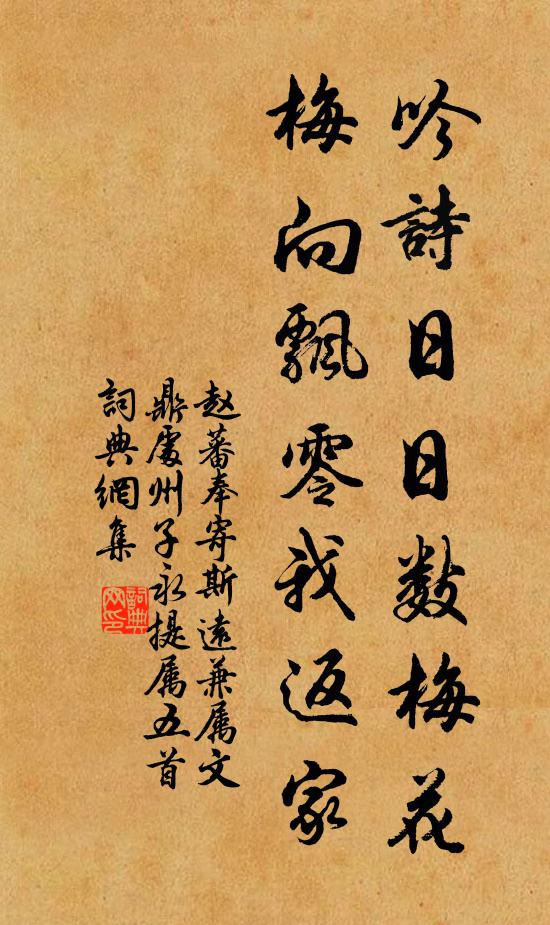 吟詩日日數梅花
梅向飄零我返家
赵蕃奉寄斯遠兼属文
鼎處州子永提属五首
詞典網集
詞典網印